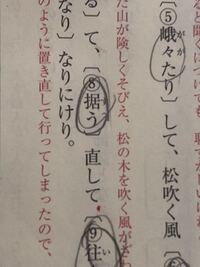 〔⑤峨々たり〕して、松吹く風〔
た山が険しくそびえ、松の木を吹く風がざわ
る〕て、〔⑧据う〕直して、〔⑨往
なり〕なりにけり。
のように置き直して行ってしまったので、